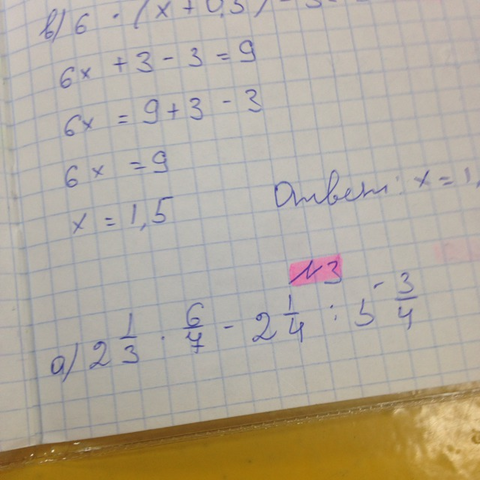 в) 6 · (x + 0,5) - 3
6x + 3 - 3 = 9
6x = 9 + 3 - 3
6x = 9
x = 1,5
Ответ: x = 1,
№3
а) 2 1/3 · 6/7 - 2 1/4 : 5 3/4